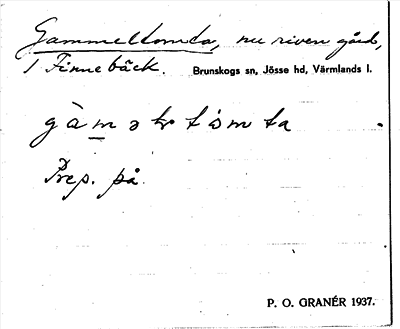 Gammeltomta, nu riven gård,
1 Finnebäck. Brunskogs sn, Jösse hd, Värmlands l.
Prep. på.
P. O. GRANÉR 1937.